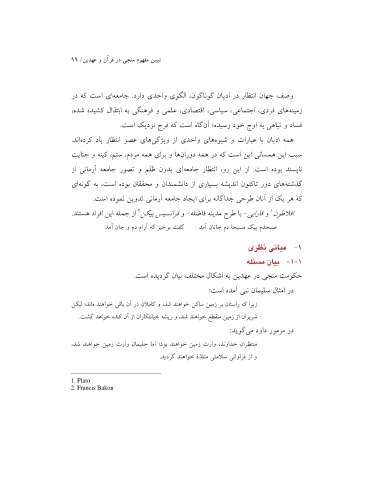 تبیین مفهوم منجی در قرآن و عهدین / ۹۹
وصف جهان انتظار در ادیان گوناگون، الگوی واحدی دارد. جامعه‌ای است که در
زمینه‌های فردی، اجتماعی، سیاسی، اقتصادی، علمی و فرهنگی به ابتذال کشیده شده،
فساد و تباهی به اوج خود رسیده؛ آن‌گاه است که فرج نزدیک است.
همه ادیان با عبارات و شیوه‌های واحدی از ویژگی‌های عصر انتظار یاد کرده‌اند.
سبب این همسانی این است که در همه دوران‌ها و برای همه مردم، ستم، کینه و جنایت
ناپسند بوده است. از این رو، انتظار جامعه‌ای بدون ظلم و تصور جامعه آرمانی از
گذشته‌های دور تاکنون اندیشه بسیاری از دانشمندان و محققان بوده است، به گونه‌ای
که هر یک از آنان طرحی جداگانه برای ایجاد جامعه آرمانی تدوین نموده است.
افلاطون۱ و فارابی- با طرح مدینه فاضله- و فرانسیس بیکن۲ از جمله این افراد هستند.
صبحدم پیک مسیحا دم جانان آمد گفت برخیز که آرام دم و جان آمد
۱- مبانی نظری
۱-۱- بیان مسئله
حکومت منجی در عهدین به اشکال مختلف بیان گردیده است.
در امثال سلیمان نبی آمده است:
زیرا که راستان بر زمین ساکن خواهند شد، و کاملان در آن باقی خواهند ماند؛ لیکن
شریران از زمین منقطع خواهند شد، و ریشه خیانتکاران از آن کنده خواهد گشت.
در مزمور داود می‌گوید:
منتظران خداوند، وارث زمین خواهند بود؛ اما حلیمان وارث زمین خواهند شد،
و از فراوانی سلامتی متلذذ خواهند گردید.
1. Plato
2. Francis Bakon